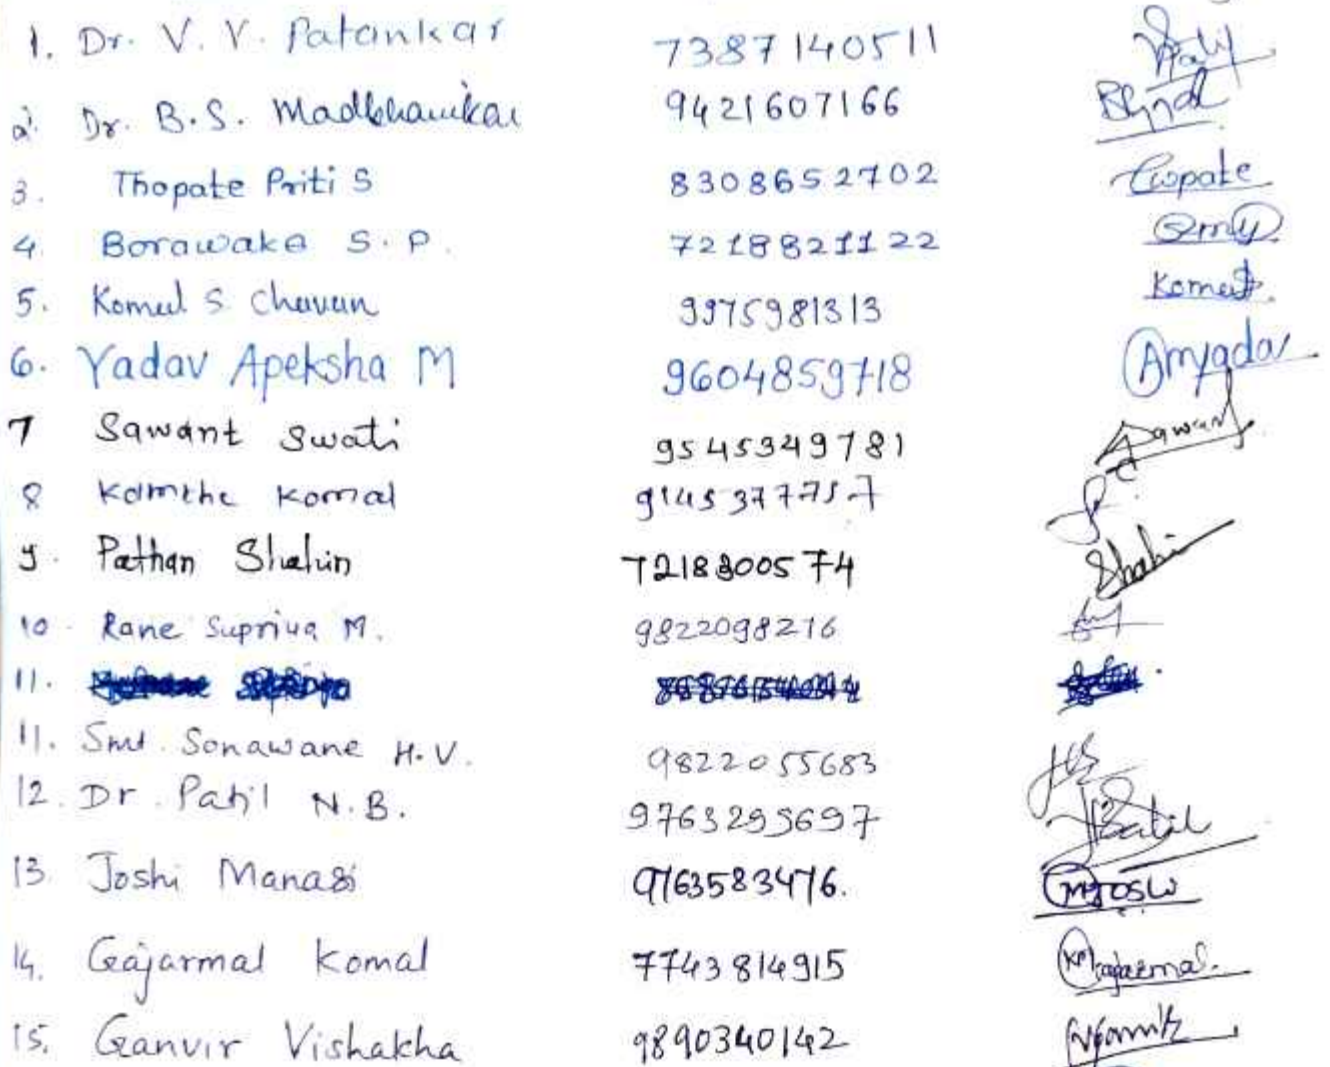 1. Dr. V. V. Patankar 7387140511
2. Dr. B.S. Madbhavikar 9421607166
3. Thopate Priti S 8308652702 Thopate
4. Borawake S. P. 7218821122
5. Komal S. Chavan 9975981313 Komal
6. Yadav Apeksha M 9604859718 Amyadav
7 Sawant Swati 9545349781 Sawant
8 Kamthe Komal 9145377757
9. Pathan Shahin 7218300574 Shahin
10. Rane Supriya M. 9822098216
11.
11. Smt. Sonawane H.V. 9822055683
12. Dr. Patil N.B. 9763295697 Patil
13 Joshi Manasi 9763583476. MJoshi
14. Gajarmal Komal 7743814915 Gajarmal.
15. Ganvir Vishakha 9890340142